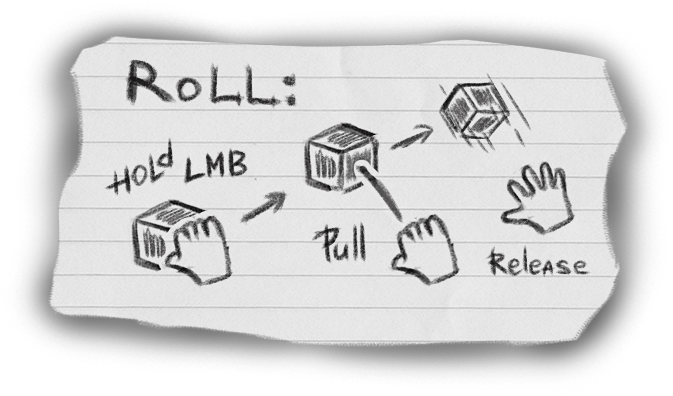 RoLL:
HOLd LMB
Pull
Release